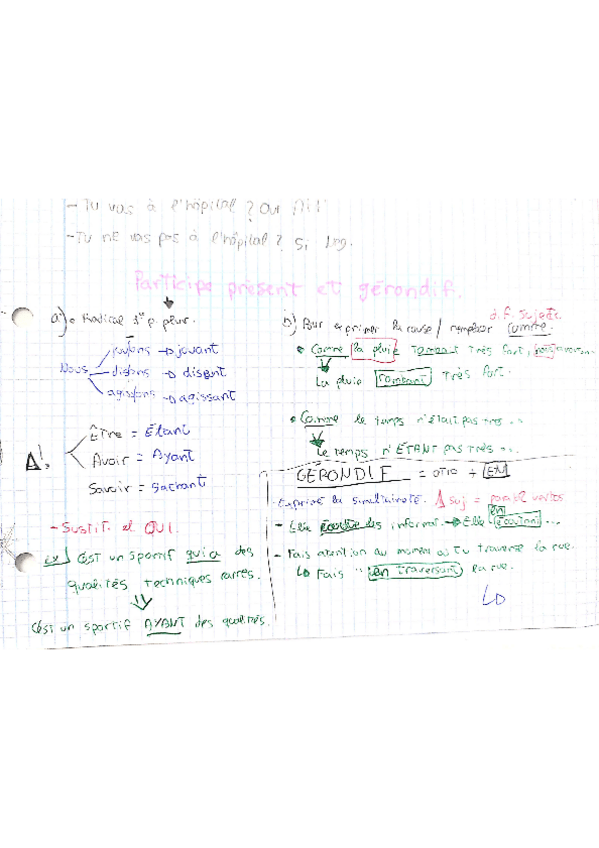 - Tu vas à l'hôpital ? Oui
- Tu ne vas pas à l'hôpital ? Si
Participe présent et gérondif.
a) • Radical 1º p plur.
Nous
jouons → jouant
disons → disant
agissons → agissant
Être = Étant
Avoir = Ayant
Savoir = Sachant
- SUSTIT. el QUI.
C'EST un sportif qui a des
qualités techniques rares.
C'est un sportif AYANT des qualités.
d.f. sujets.
b) Pour exprimer la cause / remplacer Comme.
• Comme la pluie tombait très fort,
La pluie tombant très fort.
• Comme le temps n'était pas très ...
Le temps n'ÉTANT pas très ...
GÉRONDIF = + EN
Exprime la simultaneité. 1 suj = para 2 verbos
- écoute les informat. → Elle en écoutant ...
- Fais attention au moment où tu traverse la rue.
Fais " en traversant la rue.